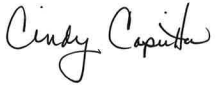 Cindy Caputta